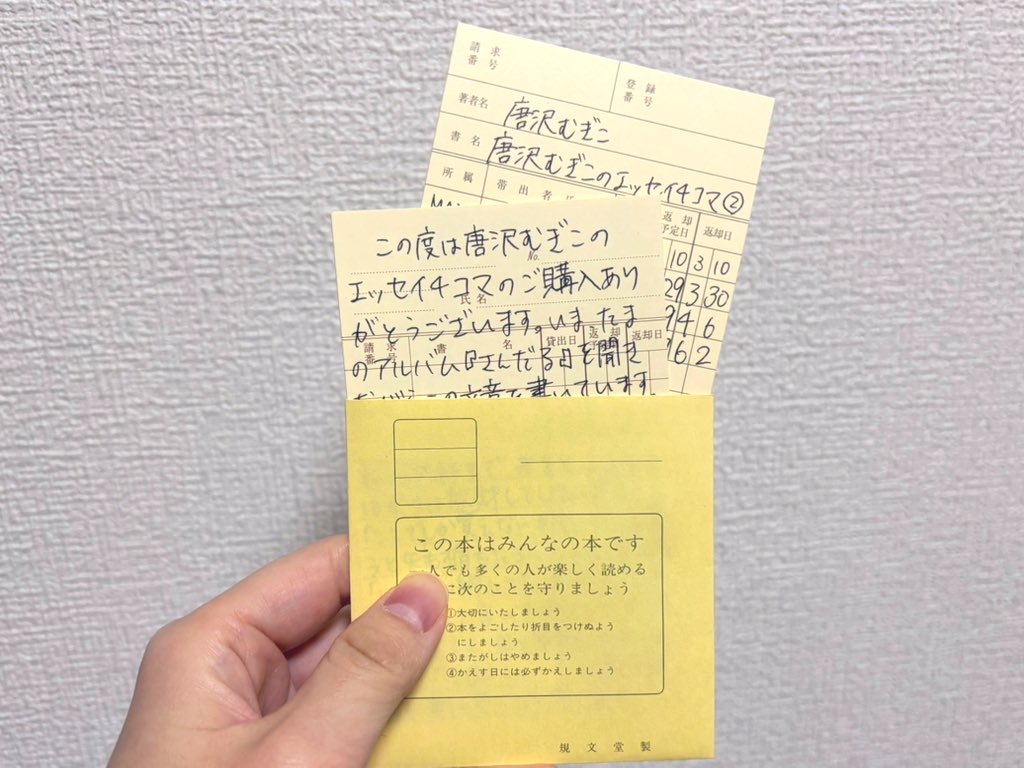 請求番号
登録番号
著者名 唐沢むぎこ
書名 唐沢むぎこのエッセイ4コマ②
所属 帯出者氏
返却予定日 返却日
10 3 10
29 3 30
4 6
6 2
この度は唐沢むぎこの
No.
エッセイ4コマのご購入あり
氏名
がとうございます。いまたま
請求番号 書名 貸出日 返却 返却日
のアルバム『さんだる』を聞き
この文章を書いています。
この本はみんなの本です
人でも多くの人が楽しく読める
に次のことを守りましょう
①大切にいたしましょう
②本をよごしたり折目をつけぬよう
にしましょう
③またがしはやめましょう
④かえす日には必ずかえしましょう
規文堂製